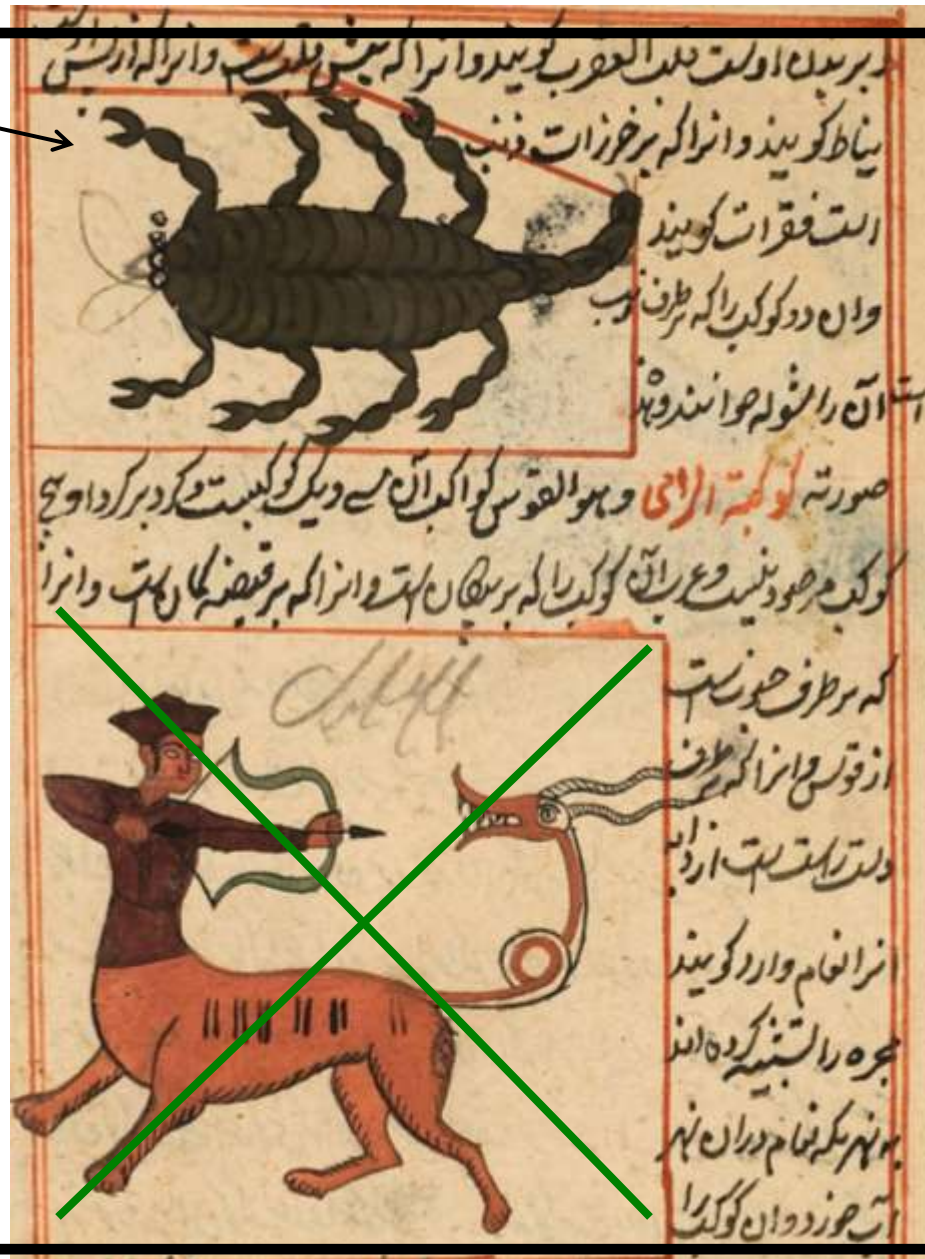 و بر بدن اوست قلب العقرب کویند وانرا که پیش قلبست وانرا که از پس
نیاط کویند و انرا که بر خرزات ذنب
است فقرات کویند
وان دو کوکب را که بر طرف ذنب
است آن را شوله خوانند وهذ
صورته کوکبة الرامی وهو القوس کواکب آن سی ویک کوکبست و کرد بر کرد او هیچ
کوکب مرصود نیست و عرب آن کوکب را که بر پیکان است و انرا که بر قبضه کمان است وانرا
که بر طرف جنوبیست
از قوس و انرا که بر طرف
دست راست است از دابه
انرا نعام وارد کویند
مجره را تشبیه کرده اند
بونهر یکه نعام دران نهر
آب خورد و ان کوکب را